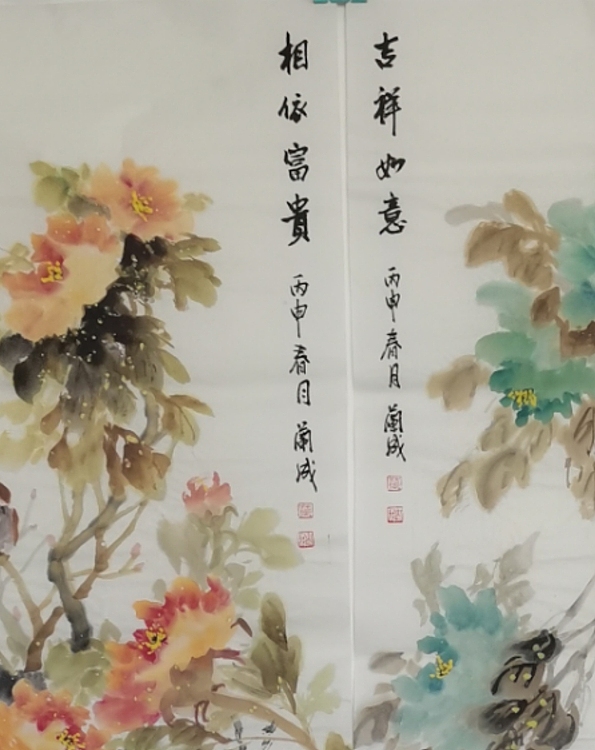 吉祥如意
丙申春月 蘭成
相依富貴
丙申春月 蘭成